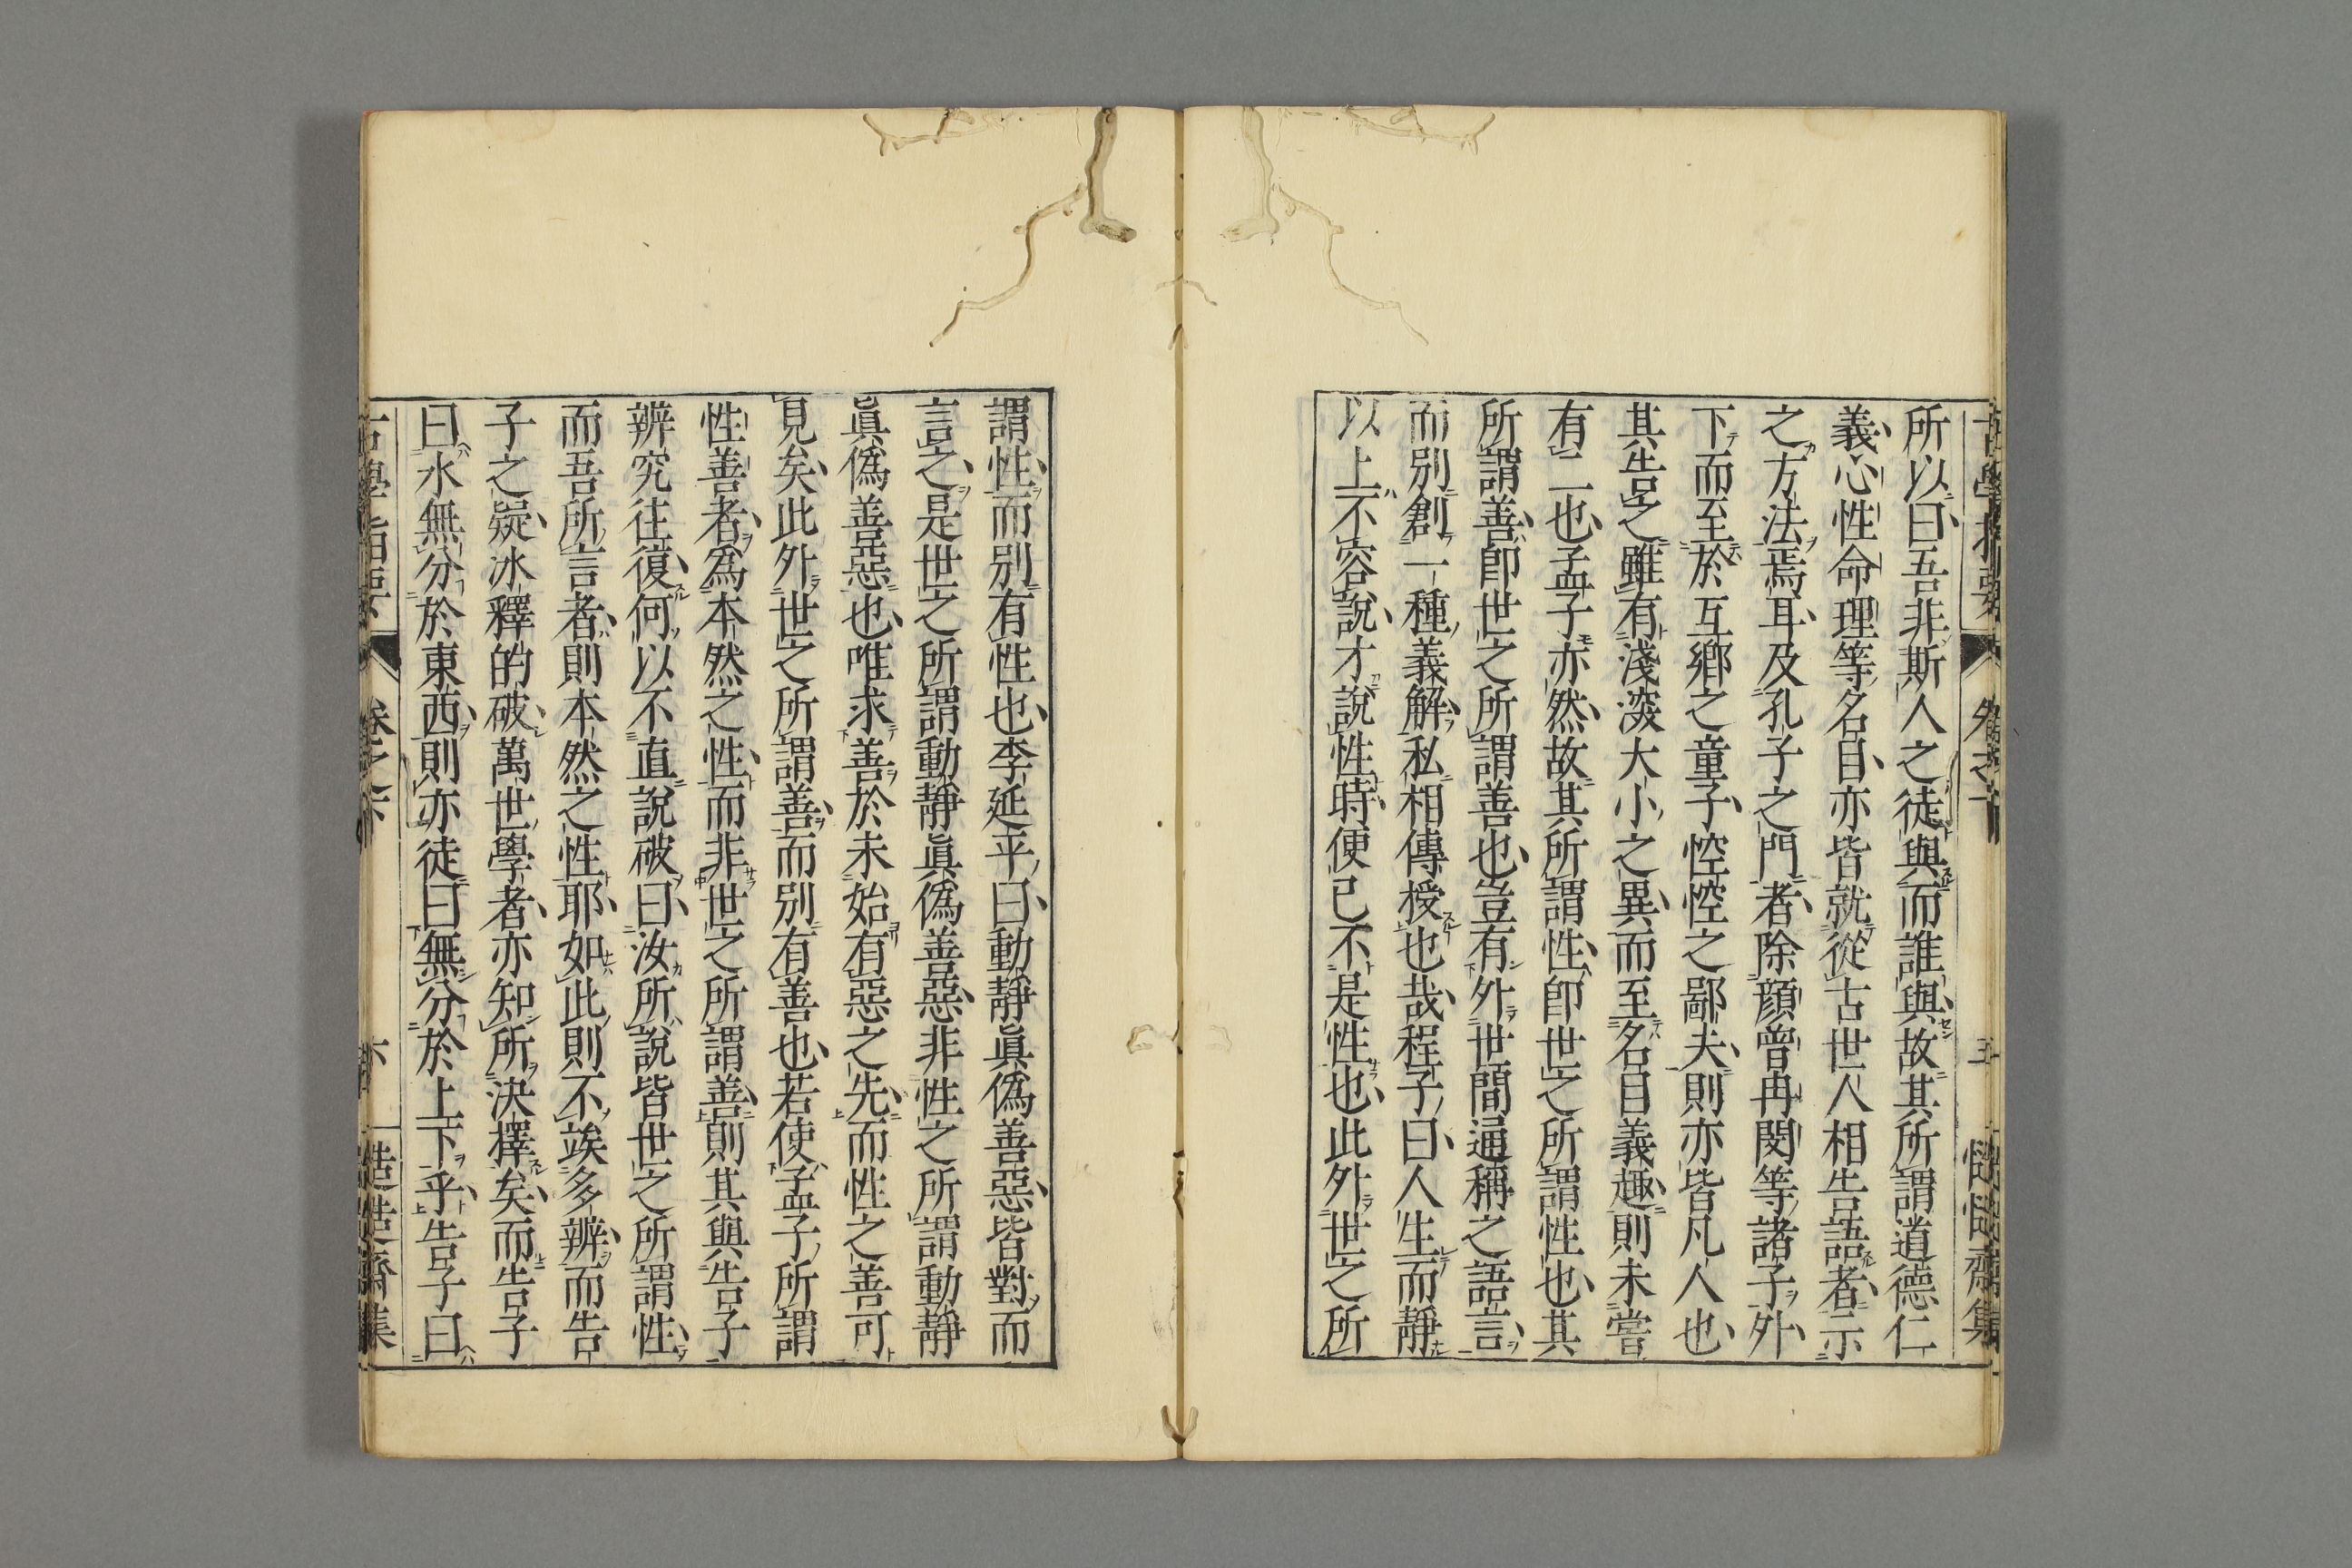 古學指要
卷之下
五
慥慥齋集
所以曰吾非斯人之徒與而誰與故其所謂道德仁
義心性命理等名目亦皆就從古世人相告語者示
之方法焉耳及孔子之門者除顔曾冉閔等諸子外
下而至於互鄕之童子悾悾之鄙夫則亦皆凡人也
其告之雖有淺深大小之異而至名目義趣則未嘗
有二也孟子亦然故其所謂性卽世之所謂性也其
所謂善卽世之所謂善也豈有外世間通稱之語言
而別創一種義解私相傳授也哉程子曰人生而靜
以上不容說才說性時便已不是性也此外世之所
謂性而別有性也李延平曰動靜眞僞善惡皆對而
言之是世之所謂動靜眞僞善惡非性之所謂動靜
眞僞善惡也唯求善於未始有惡之先而性之善可
見矣此外世之所謂善而別有善也若使孟子所謂
性善者爲本然之性而非世之所謂善則其與告子
辨究往復何以不直說破曰汝所說皆世之所謂性
而吾所言者則本然之性耶如此則不竢多辨而告
子之疑冰釋的破萬世學者亦知所決擇矣而告子
曰水無分於東西則亦徒曰無分於上下乎告子曰
古學指要
卷之下
六
慥慥齋集